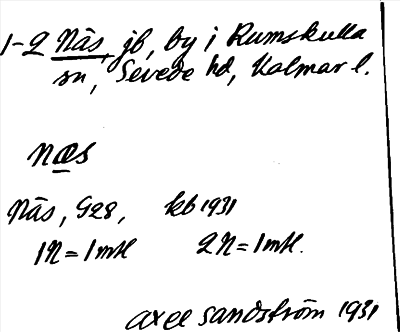 1-2 Näs, jb, by i Rumskulla
sn, Sevede hd, Kalmar l.
næs
Näs, G28, kb 1931
1N = 1 mtl 2N = 1 mtl.
Axel Sandström 1931